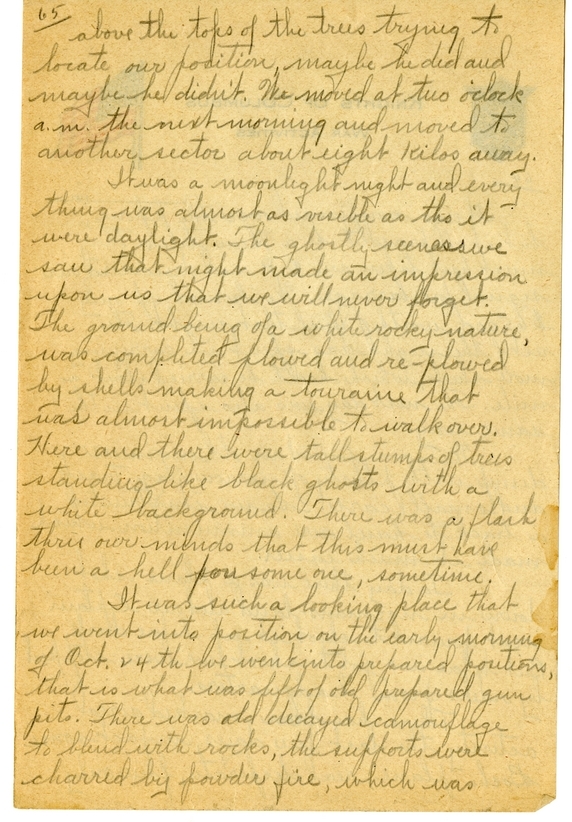 65
above the tops of the trees trying to
locate our position, maybe he did and
maybe he didn't. We moved at two o'clock
a.m. the next morning and moved to
another sector about eight Kilos away.
It was a moonlight night and every
thing was almost as visible as tho it
were daylight. The ghostly scenes we
saw that night made an impression
upon us that we will never forget.
The ground being of a white rocky nature,
was completed plowed and re-plowed
by shells making a touraine that
was almost impossible to walk over.
Here and there were tall stumps of trees
standing like black ghosts with a
white background. There was a flash
thru our minds that this must have
been a hell for some one, sometime.
It was such a looking place that
we went into position on the early morning
of Oct. 24th we went into prepared positions,
that is what was left of old prepared gun
pits. There was old decayed camouflage
to blend with rocks, the supports were
charred by powder fire, which was